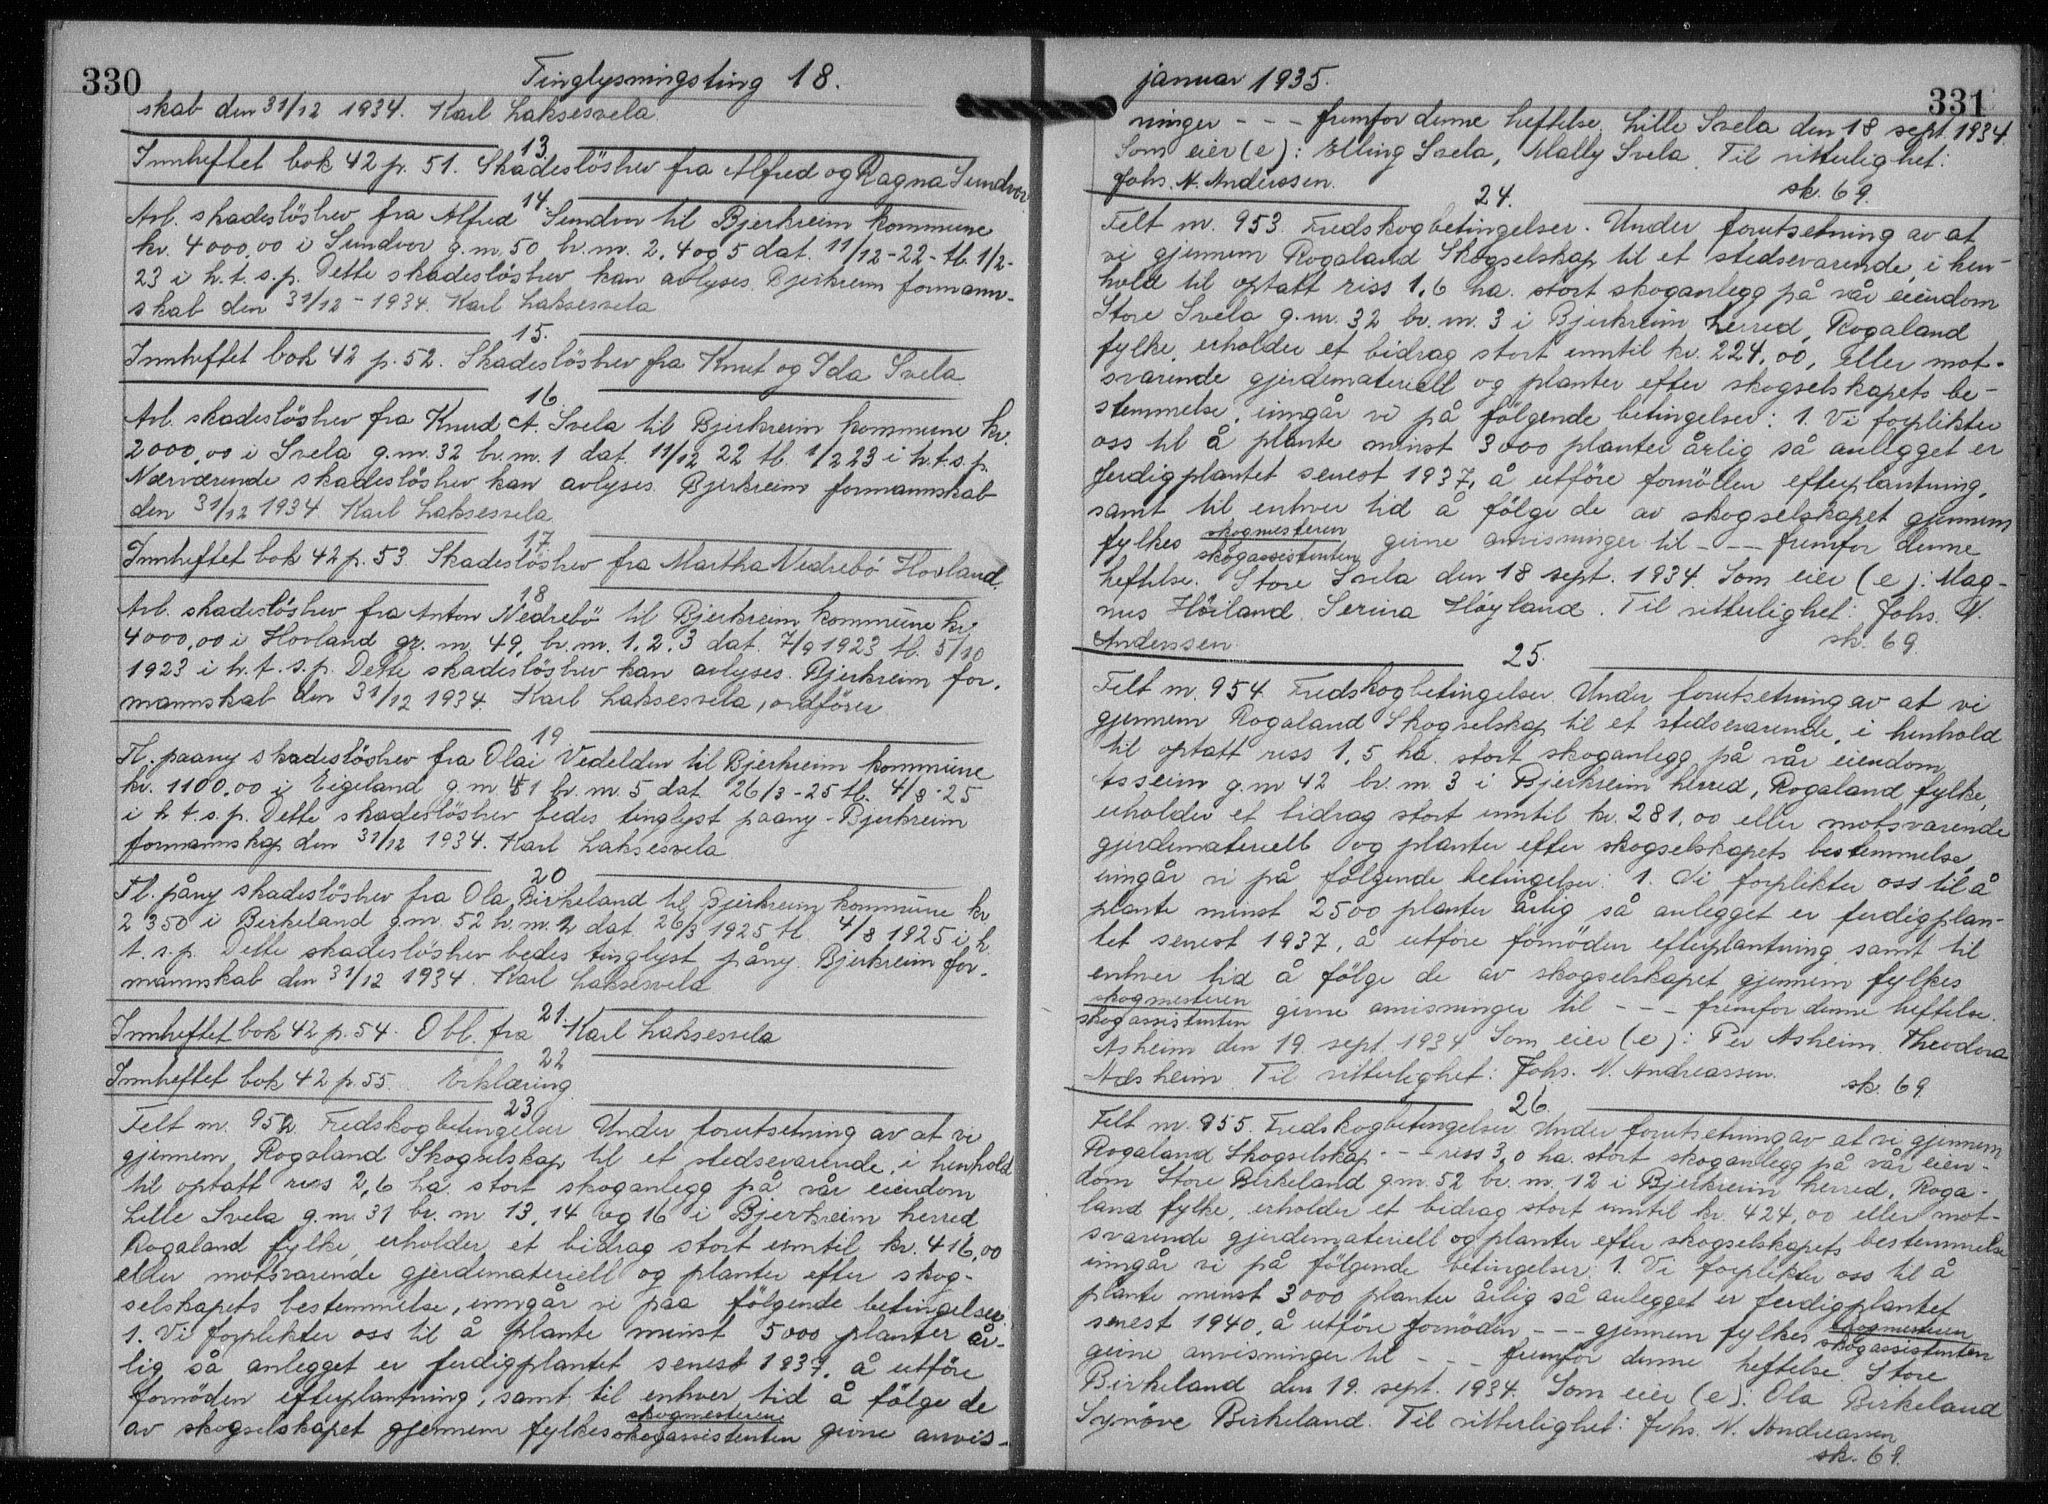 330
Tinglysningsting 18.
skab den 31/12 1934. Karl Laksesvela
13.
Innheftet bok 42 p. 51. Skadeslöshev fra Alfred og Ragna Sundvor
14.
Avl. skadeslöshev fra Alfred Sundvor til Bjerkreim kommune
kr. 4000,00 i Sundvor g.nr. 50 br.nr. 2, 4 og 5 dat. 11/12-22- tl. 1/2-
23 i h.t.s.p. Dette skadeslöshev kan avlyses. Bjerkreim formann-
skab den 31/12 - 1934. Karl Laksesvela
15.
Innheftet bok 42 p. 52. Skadeslöshev fra Knut og Ida Svela
16.
Avl. skadeslöshev fra Knud A. Svela til Bjerkreim kommune kr.
2000,00 i Svela g.nr. 32 br.nr. 1 dat. 11/12 22 tl. 1/2 23 i h.t.s.p.
Nærværende skadeslöshev kan avlyses. Bjerkreim formannskab
den 31/12 1934 Karl Laksesvela
17
Innheftet bok 42 p. 53. Skadeslöshev fra Martha Nedrebö Hovland.
18
Avl. skadeslöshev fra Anton Nedrebö til Bjerkreim kommune kr.
4000,00 i Hovland gr. nr. 49, br.nr. 1, 2, 3 dat. 7/9 1923 tl. 5/10
1923 i h.t.s.p. Dette skadeslöshev kan avlyses. Bjerkreim for.
mannskab den 31/12 1934. Karl Laksesvela, ordförer
19
Tl. paany skadeslöshev fra Olai Vedelden til Bjerkreim kommune
kr. 1100,00 i Eigeland g.nr. 51 br.nr. 5 dat. 26/3-25 tl. 4/8-25
i h.t.s.p. Dette skadeslöshev bedes tinglyst paany - Bjerkreim
formannskap den 31/12 1934. Karl Laksesvela
20
Tl. påny skadeslöshev fra Ola Birkeland til Bjerkreim kommune kr
2350 i Birkeland g.nr. 52 br.nr. 2 dat. 26/3 1925 tl. 4/8 1925 i h.
t.s.p. Dette skadeslöshev bedes tinglyst påny. Bjerkreim for-
mannskab den 31/12 1934. Karl Laksesvela
21.
Innheftet bok 42 p. 54. Obl. fra Karl Laksesvela
22
Innheftet bok 42 p. 55. Erklæring
23
Felt nr. 952. Fredskogbetingelser Under forutsetning av at vi
gjennem Rogaland Skogselskap til et stedsevarende, i henhold
til optatt riss 2,6 ha. stort skoganlegg på vår eiendom
Lille Svela g.nr. 31 br. nr 13, 14 og 16 i Bjerkreim herred
Rogaland fylke, erholder et bidrag stort inntil kr. 416,00
eller motsvarende gjerdemateriell og planter efter skog-
selskapets bestemmelse, inngår vi paa fölgende betingelser:
1. Vi forplikter oss til å plante minst 5000 planter år-
lig så anlegget er ferdigplantet senest 1937, å utföre
fornöden efterplantning, samt til enhver tid å fölge de
av skogselskapet gjennem fylkes skogmesteren skogassistenten givne anvis-
januar 1935.
331
ninger - - - fremfor denne heftelse. Lille Svela den 18 sept. 1934.
Som eier (e): Elling Svela, Mally Svela. Til vitterlighet:
Johs. N. Anderssen. sk. 69.
24.
Felt nr. 953. Fredskogbetingelser. Under forutsetning av at
vi gjennem Rogaland Skogselskap til et stedsevarende, i hen-
hold til optatt riss 1,6 ha. stort skoganlegg på vår eiendom
Store Svela g.nr. 32 br. nr. 3 i Bjerkreim herred, Rogaland
fylke, erholder et bidrag stort inntil kr. 224,00, eller mot-
svarende gjerdemateriell og planter efter skogselskapets be-
stemmelse, inngår vi på fölgende betingelser: 1. Vi forplikter
oss til å plante minst 3000 planter årlig så anlegget er
ferdigplantet senest 1937, å utföre fornöden efterplantning,
samt til enhver tid å fölge de av skogselskapet gjennem
fylkes skogmesteren skogassistenten givne anvisninger til - - - fremfor denne
heftelse. Store Svela den 18 sept. 1934. Som eier (e): Mag-
nus Höiland. Serina Høyland. Til vitterlighet: Johs. N.
Anderssen. sk. 69.
25.
Felt nr. 954. Fredskogbetingelser. Under forutsetning av at vi
gjennem Rogaland Skogselskap til et stedsevarende, i henhold
til optatt riss 1,5 ha. stort skoganlegg på vår eiendom
Asseim g.nr 42 br. nr. 3 i Bjerkreim herred, Rogaland fylke,
erholder et bidrag stort inntil kr. 281,00 eller motsvarende
gjerdemateriell og planter efter skogselskapets bestemmelse,
inngår vi på fölgende betingelser: 1. Vi forplikter oss til å
plante minst 2500 planter årlig så anlegget er ferdigplan-
tet senest 1937, å utföre fornöden efterplantning samt til
enhver tid å fölge de av skogselskapet gjennem fylkes
skogmesteren skogassistenten givne anvisninger til - - fremfor denne heftelse.
Asheim den 19. sept. 1934 Som eier (e): Per Asheim. Theodora
Aasheim. Til vitterlighet: Johs. N. Andreassen. sk. 69.
26.
Felt nr. 955. Fredskogbetingelser. Under forutsetning av at vi gjennem
Rogaland Skogselskap - - - riss 3,0 ha. stort skoganlegg på vår eien-
dom Store Birkeland g.nr. 52 br. nr. 12 i Bjerkreim herred, Roga-
land fylke, erholder et bidrag stort inntil kr. 424,00 eller mot-
svarende gjerdemateriell og planter efter skogselskapets bestemmelse
inngår vi på fölgende betingelser: 1. Vi forplikter oss til å
plante minst 3000 planter årlig så anlegget er ferdigplantet
senest 1940, å utföre fornöden - - - gjennem fylkes skogmesteren skogassistenten
givne anvisninger til - - - fremfor denne heftelse. Store
Birkeland den 19. sept. 1934. Som eier (e): Ola Birkeland
Synöve Birkeland. Til vitterlighet: Johs. N. Andreassen
sk. 69.